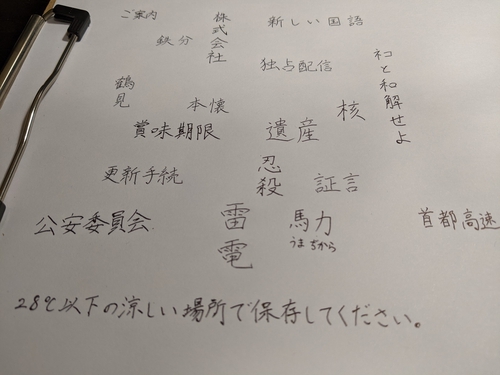 ご案内
株式会社
新しい国語
鉄分
独占配信
ネコと和解せよ
鶴見
本懐
核
賞味期限
遺産
忍殺
更新手続
証言
公安委員会
雷電
馬力
うまぢから
首都高速
28℃以下の涼しい場所で保存してください。